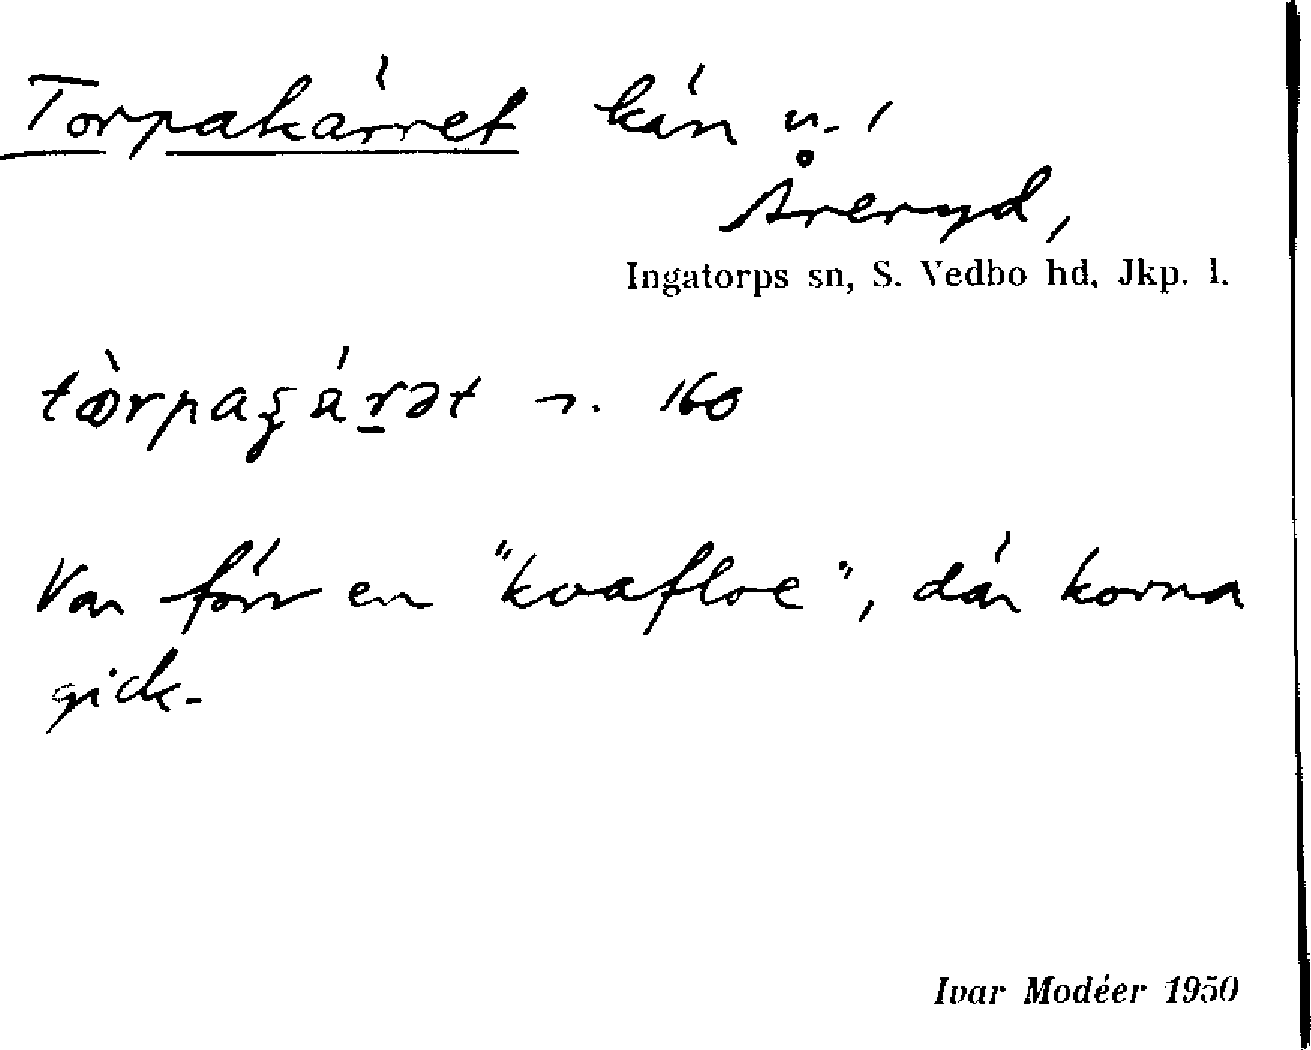 Torpakärret kärr u. i
Åreryd,
Ingatorps sn, S. Vedbo hd, Jkp. l.
160
Var förr en "kvafloe", där korna
gick.
Ivar Modéer 1950